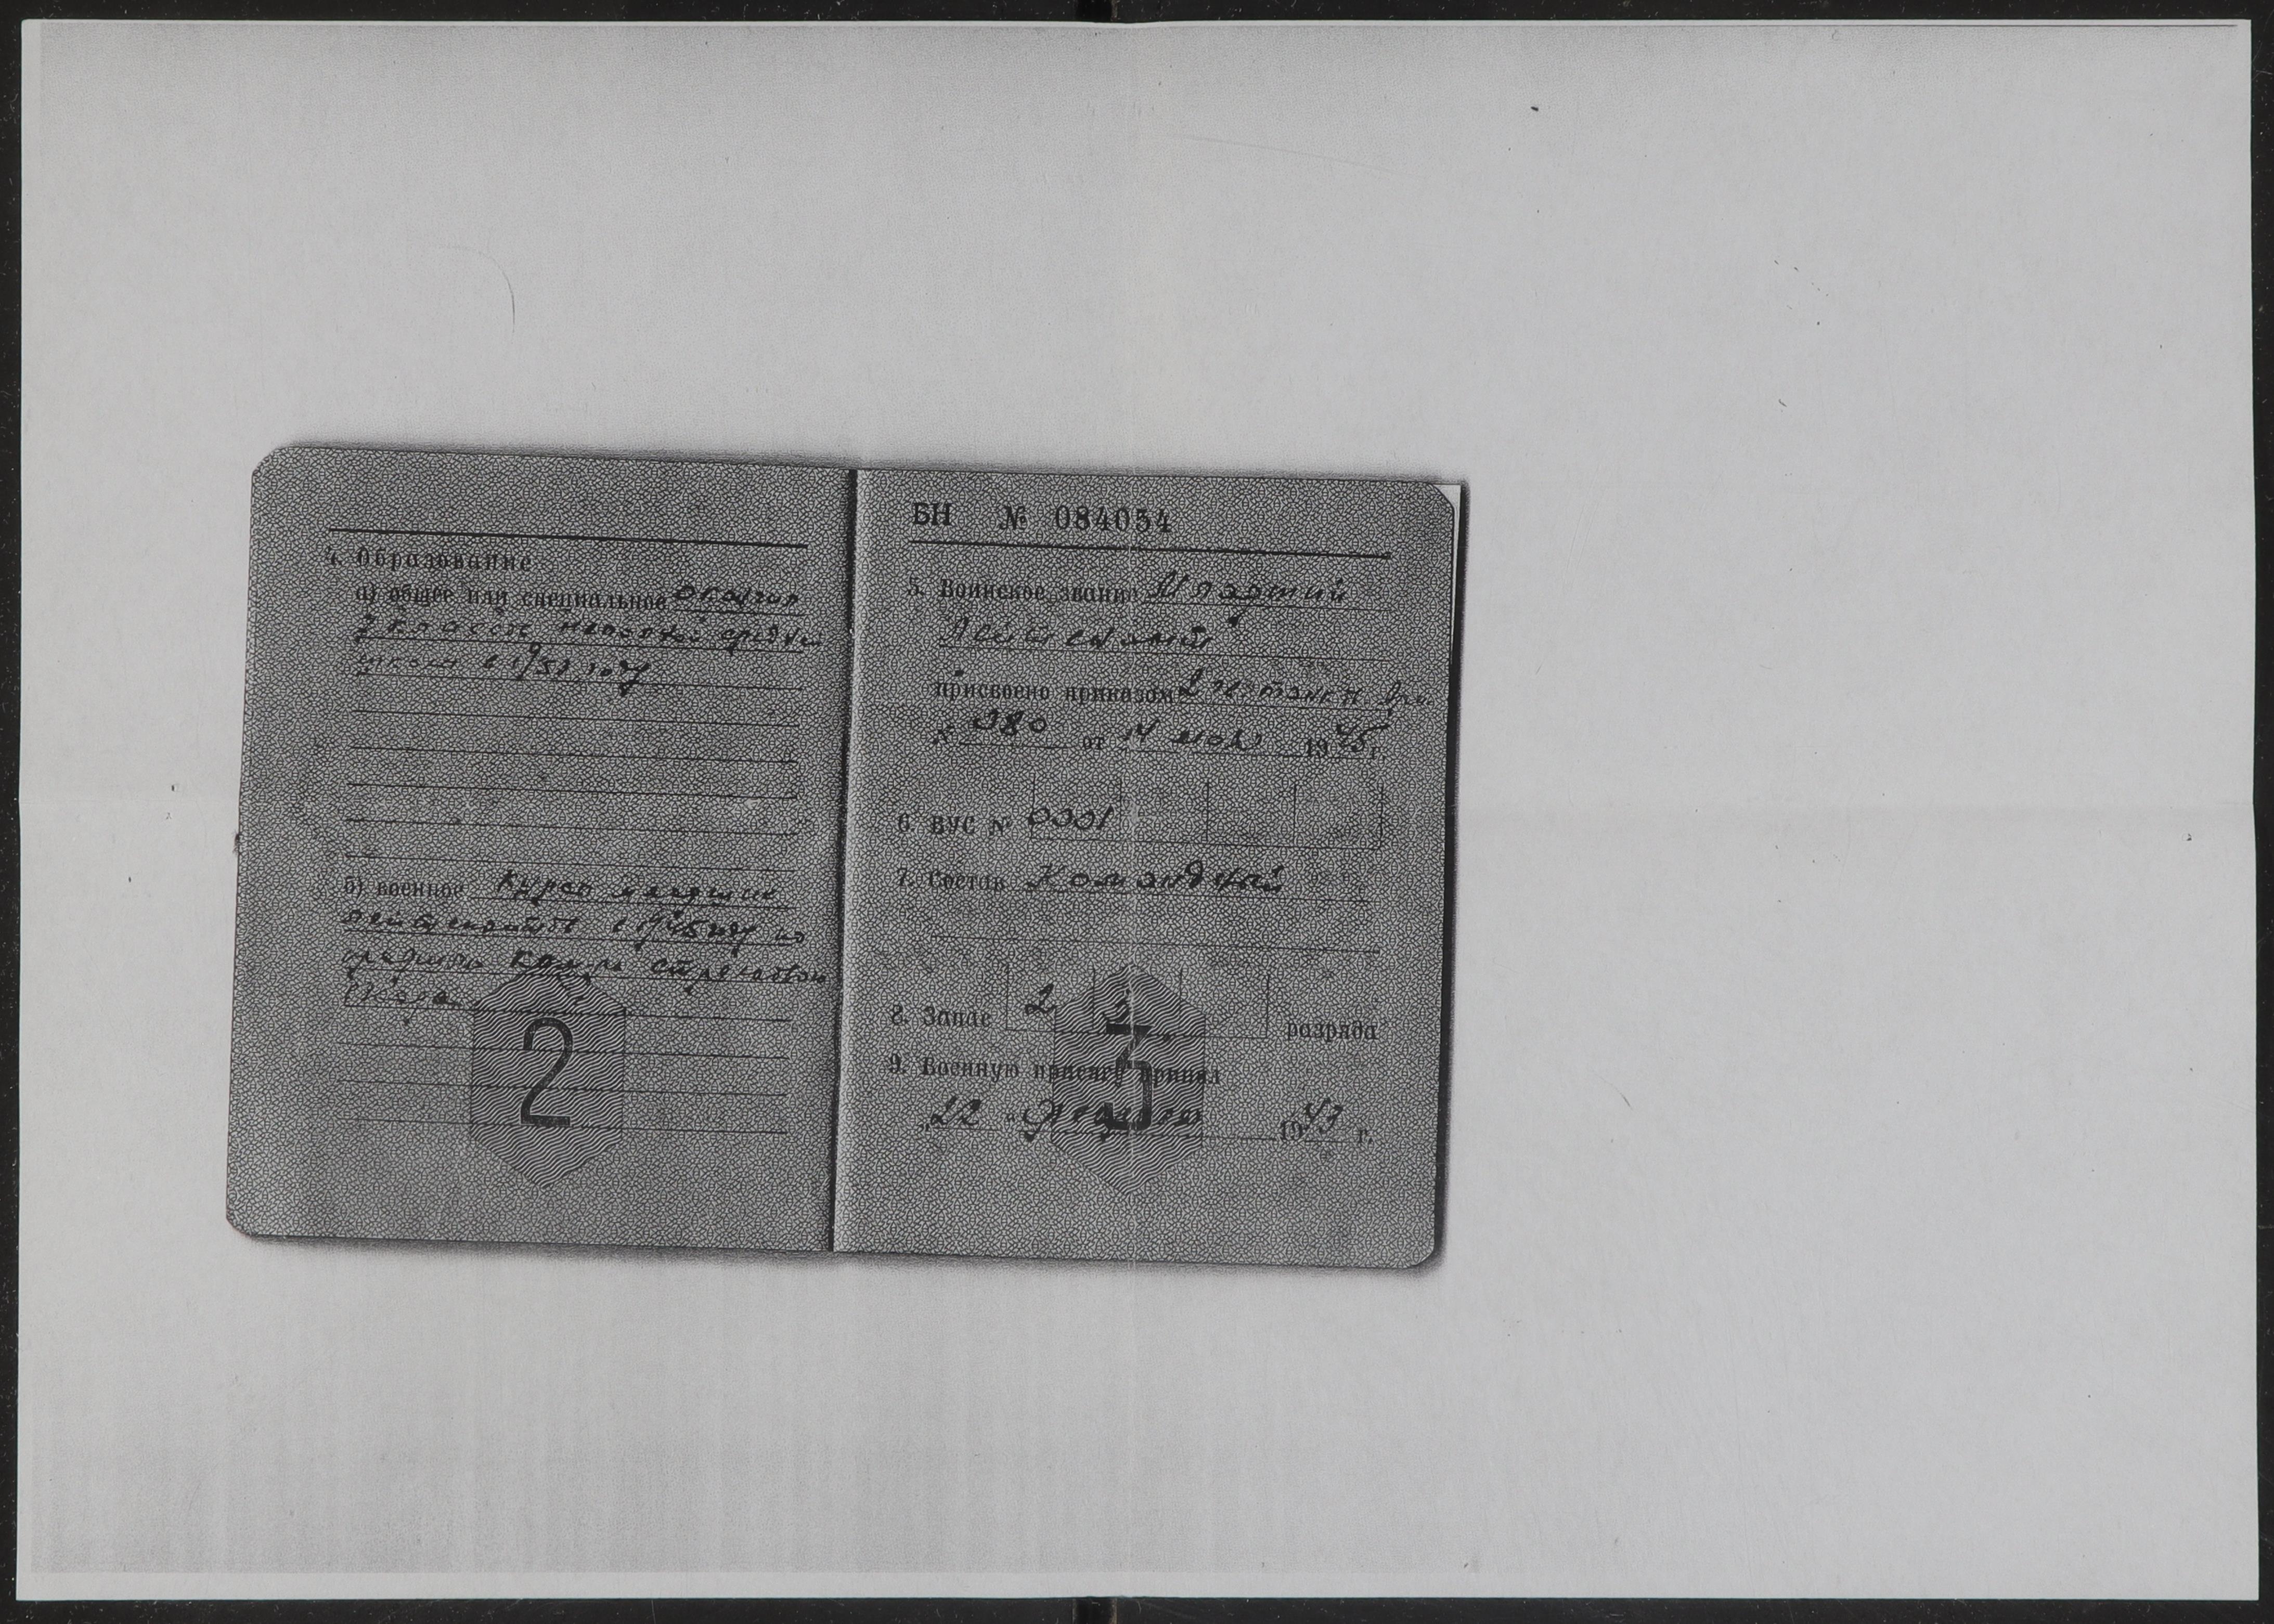 4. Образование
а) общее или специальное окончил
7 классов неполной средней
школы в 1951 году
б) военное Курсы младших
лейтенантов в 1945 году по
стрелкового
взвода
2
БН № 084054
5. Воинское звание Младший
Лейтенант
присвоено приказом
№ 080 от 14 мая 1945 г.
6. ВУС № 0001
7. Состав Командный
8. Запас 2 разряда
9. Военную присягу принял
„22“ 1943 г.
3